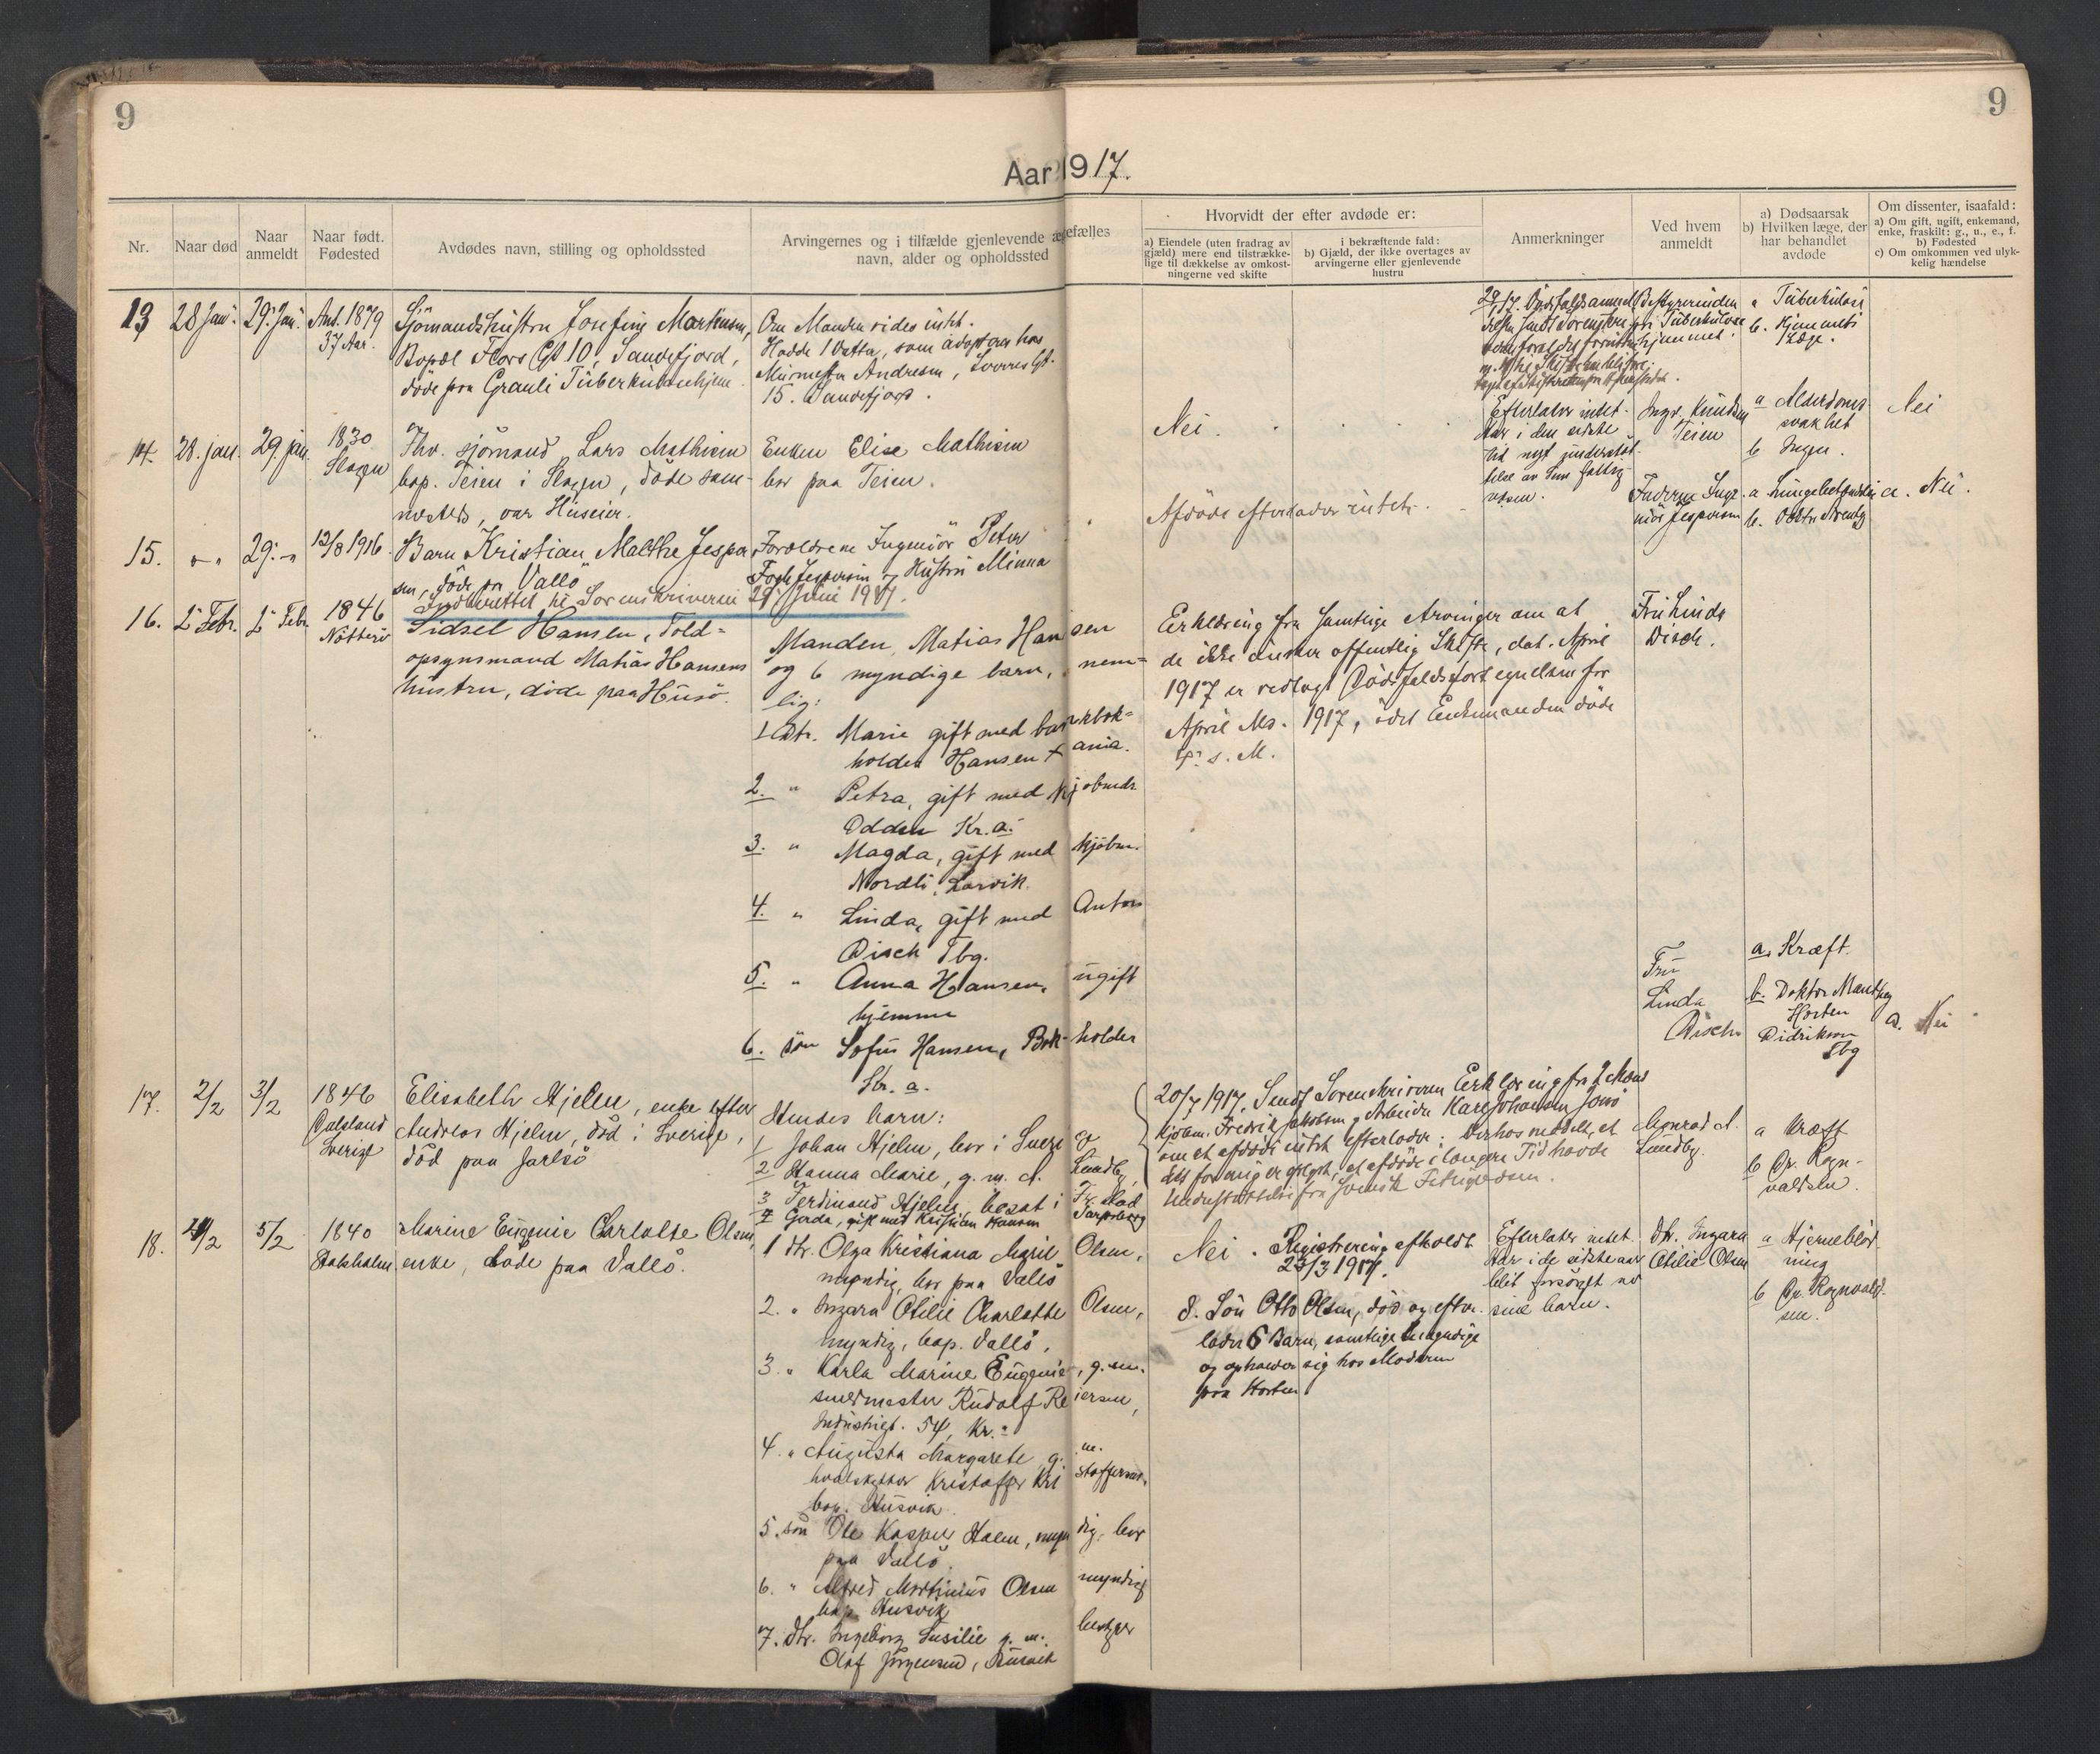 9
9
Aar 1917.
Nr.
Naar død
Naar anmeldt
Naar født. Fødested
Avdødes navn, stilling og opholdssted
Arvingernes og i tilfælde gjenlevende ægtefælles
navn, alder og opholdssted
Hvorvidt der efter avdøde er:
a) Eiendele (uten fradrag av
gjæld) mere end tilstrække-
lige til dækkelse av omkost-
ningerne ved skifte
i bekræftende fald:
b) Gjæld, der ikke overtages av
arvingerne eller gjenlevende
hustru
Anmerkninger
Ved hvem
anmeldt
a) Dødsaarsak
b) Hvilken læge, der
har behandlet
avdøde
Om dissenter, isaafald:
a) Om gift, ugift, enkemand,
enke, fraskilt: g., u., e., f.
b) Fødested
c) Om omkommen ved ulyk-
kelig hændelse
13 28 Jan. 29. Jan. Ant. 1879
37 Aar.
Sjömandshustru Josefine Martensen,
Bopæl Thors Gt 10, Sandefjord,
döde paa Grauli Tüberkülosehjem.
Om Manden vides intet.
Hadde 1 Datter, som adopteres hos
Mürmester Andresen,
15. Sandefjord.
Bestyrerinden
Tüberkülose
hjemmet.
a Tüberkülose
b. Hjemmets
Læge.
14. 28. jan. 29. jan. 1830
Slagen
Fhv. sjömand Lars Mathisen
bop. Teien i Slagen, döde sam-
mesteds, var Hüseier.
Enken Elise Mathisen
bor paa Teien.
Nei.
Efterlater intet.
Har i den sidste
tid nyt understöt-
telse av Sem fattig-
væsen.
Ingv. Knudsen
Teien
a Alderdoms-
svakhet
b Ingen.
Nei
15. " 29. " 12/8 1916.
Barn Kristian Malthe Jesper
sen, döde paa Vallö
Forældrene Ingeniör Peter
Jespersen og Hustru Minna
Afdöde efterlader intet.
Faderen Inge-
niör Jespersen
a Lungebetændelse
a. Nei.
Indberettet til Sorenskriveren 29 Juni 1917.
16. 2 Febr. 2 Febr. 1846
Nötterö
Sidsel Hansen, Told-
opsynsmand Matias Hansens
hüstru, döde paa Hüsö.
Manden, Matias Hansen
og 6 myndige barn, nem-
lig:
1 Dtr. Marie gift med bankbok-
holder Hansen Kr.ania.
2. " Petra, gift med Kjöbmd.
Odden Kr.a.
3. " Magda, gift med Kjöbm.
Nordli, Larvik.
4. " Linda, gift med Anton
Disch Tbg.
5. " Anna Hansen, ügift
hjemme
6. sön Sofüs Hansen, Bok-holder
Kr.a.
Erklæring fra samtlige Arvinger om at
de ikke önsker offentlig Skifte, dat. April
1917 er vedlagt Dödsfaldsfortegnelsen for
April Md. 1917, idet Enkemanden döde
s. M.
Frü Linda
Disch.
Frü
Linda
Disch
a. Kræft.
b. Doktor
Horten
Didriksen
Tbg
a. Nei
17. 2/2 3/2 1846
Dalsland
Sverige
Elisabeth Hjelm, enke efter
Andreas Hjelm, död i Sverige,
död paa Jarlsö
Hendes barn:
1 Johan Hjelm, bor i Sverige
2 Hanna Marie, g. m. A. Lundby,
3 Ferdinand Hjelm, bosat i Fr.stad
4 Gerda, gift med Kristian Hansen Sarpsborg
20/7 1917. Sendt Sorenskriveren Erklæring fra 2 Mænd
Kjöbm. Fredrik Jakobsen og Arbeider Karl Johansen Jarlsö
om at afdöde intet efterlader. Derhos meddelt, at
det for mig er oplyst, at afdöde i længere Tid havde
Understöttelse fra Svensk Fattigvæsen.
Konrad A.
Lundby.
a Kræft
b Dr. Ragn-
valdsen.
18. 4/2 5/2 1840
Stokholm
Marine Eügenie Charlotte Olsen,
enke, döde paa Vallö.
1 dtr. Olga Kristiana Olsen,
myndig, bor paa Vallö
2. " Ingara Otilie Charlotte Olsen,
myndig, bop. Vallö,
3. " Karla Marine Eügenie, g. m.
smedmester Rüdolf Reiersen,
Industrigt. 54, Kr.a
4. " Augüsta Margarete g. m.
hvalskytter Kristoffer Kristoffersen,
bop. Hüsvik
5. sön Ole Kasper Halm, myndig, bor
paa Vallö
6. " Alfred Martinius Olsen myndig
bop. Hüsvik
7. dtr. Ingeborg g. m.
Olaf Jörgensen, Hüsvik
Nei. Registrering afholdt
23/3 1917.
8. Sön Otto Olsen, död og efter-
lader 6 Barn, samtlige Umyndige
og opholder sig hos Moderen
paa Horten
Efterlater intet.
Har i de sidste aar
blit forsörget av
sine barn.
Dtr. Ingara
Otilie Olsen
a Hjerneblöd
ning
b Dr. Ragnvald-
sen.